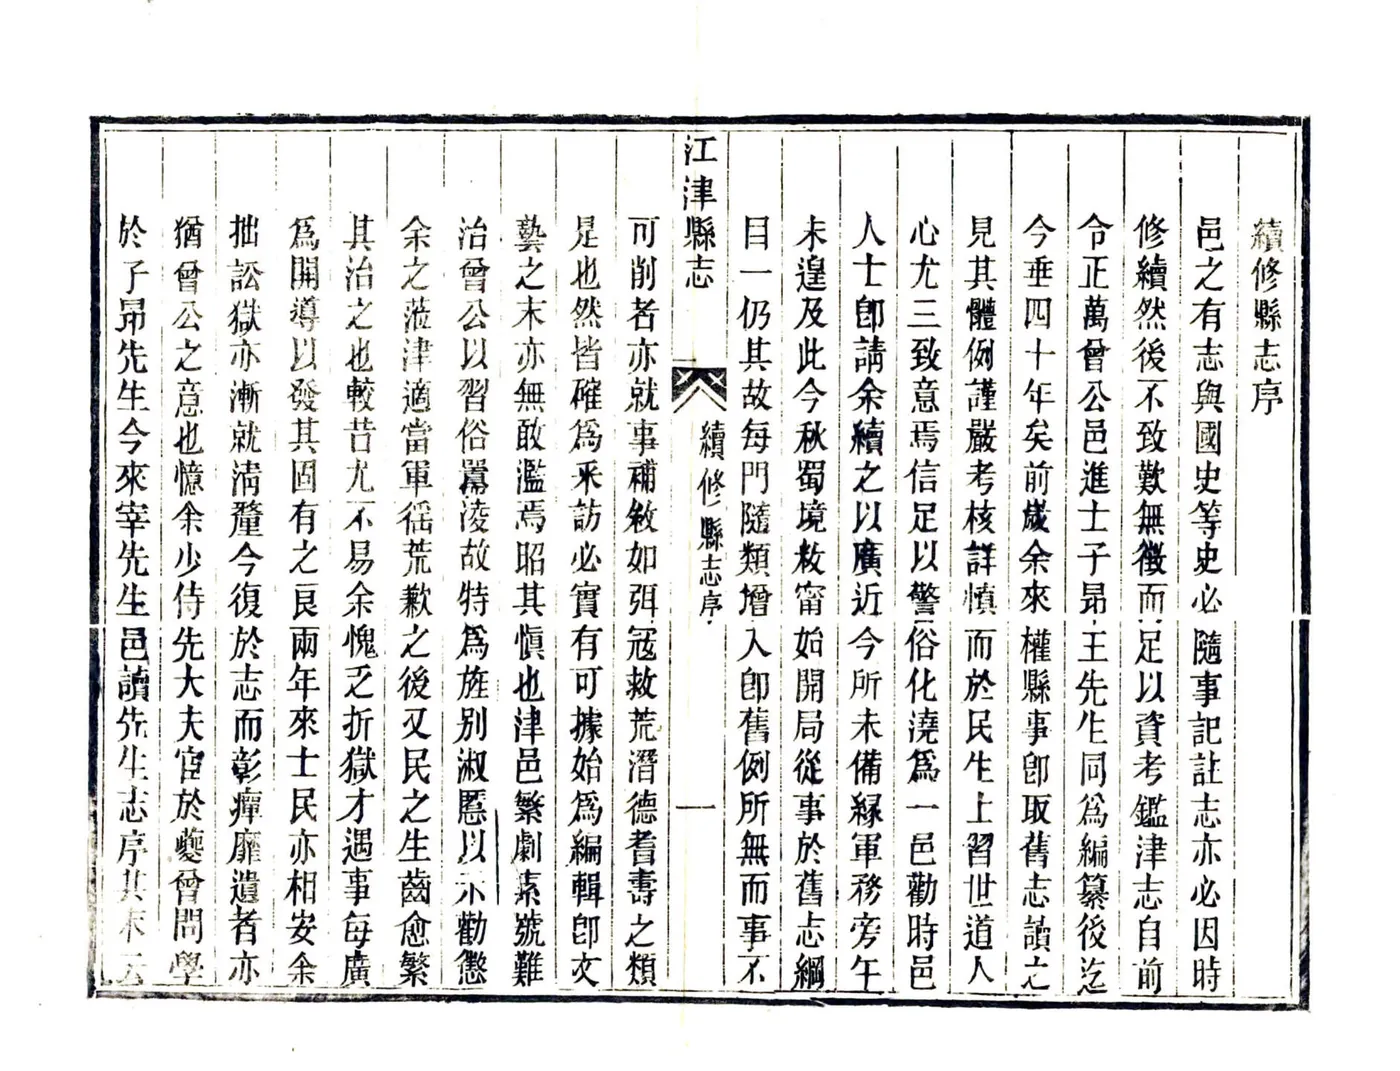 續修縣志序
邑之有志與國史等史必隨事記註志亦必因時
修續然後不致歎無徵而足以資考鑑津志自前
令正萬曾公邑進士子昴王先生同為編纂後迄
今垂四十年矣前歲余來權縣事卽取舊志讀之
見其體例謹嚴考核詳慎而於民生上習世道人
心尤三致意焉信足以警俗化澆爲一邑勸時邑
人士卽請余續之以廣近今所未備緣軍務旁午
未遑及此今秋蜀境救甯始開局從事於舊志綱
目一仍其故每門隨類增入卽舊例所無而事不
江津縣志
續修縣志序
一
可削者亦就事補敘如弭冦救荒潛德耆壽之類
是也然皆確爲采訪必實有可據始爲編輯卽文
藝之末亦無敢濫焉昭其慎也津邑繁劇素號難
治曾公以習俗嚚凌故特爲旌别淑慝以示勸懲
余之蒞津適當軍徭荒歉之後又民之生齒愈繁
其治之也較昔尤不易余愧乏折獄才遇事每廣
爲開導以發其固有之良兩年來士民亦相安余
拙訟獄亦漸就淸釐今復於志而彰癉靡遺者亦
猶曾公之意也憶余少侍先大夫宦於夔曾問學
於子昴先生今來宰先生邑讀先生志序其末云